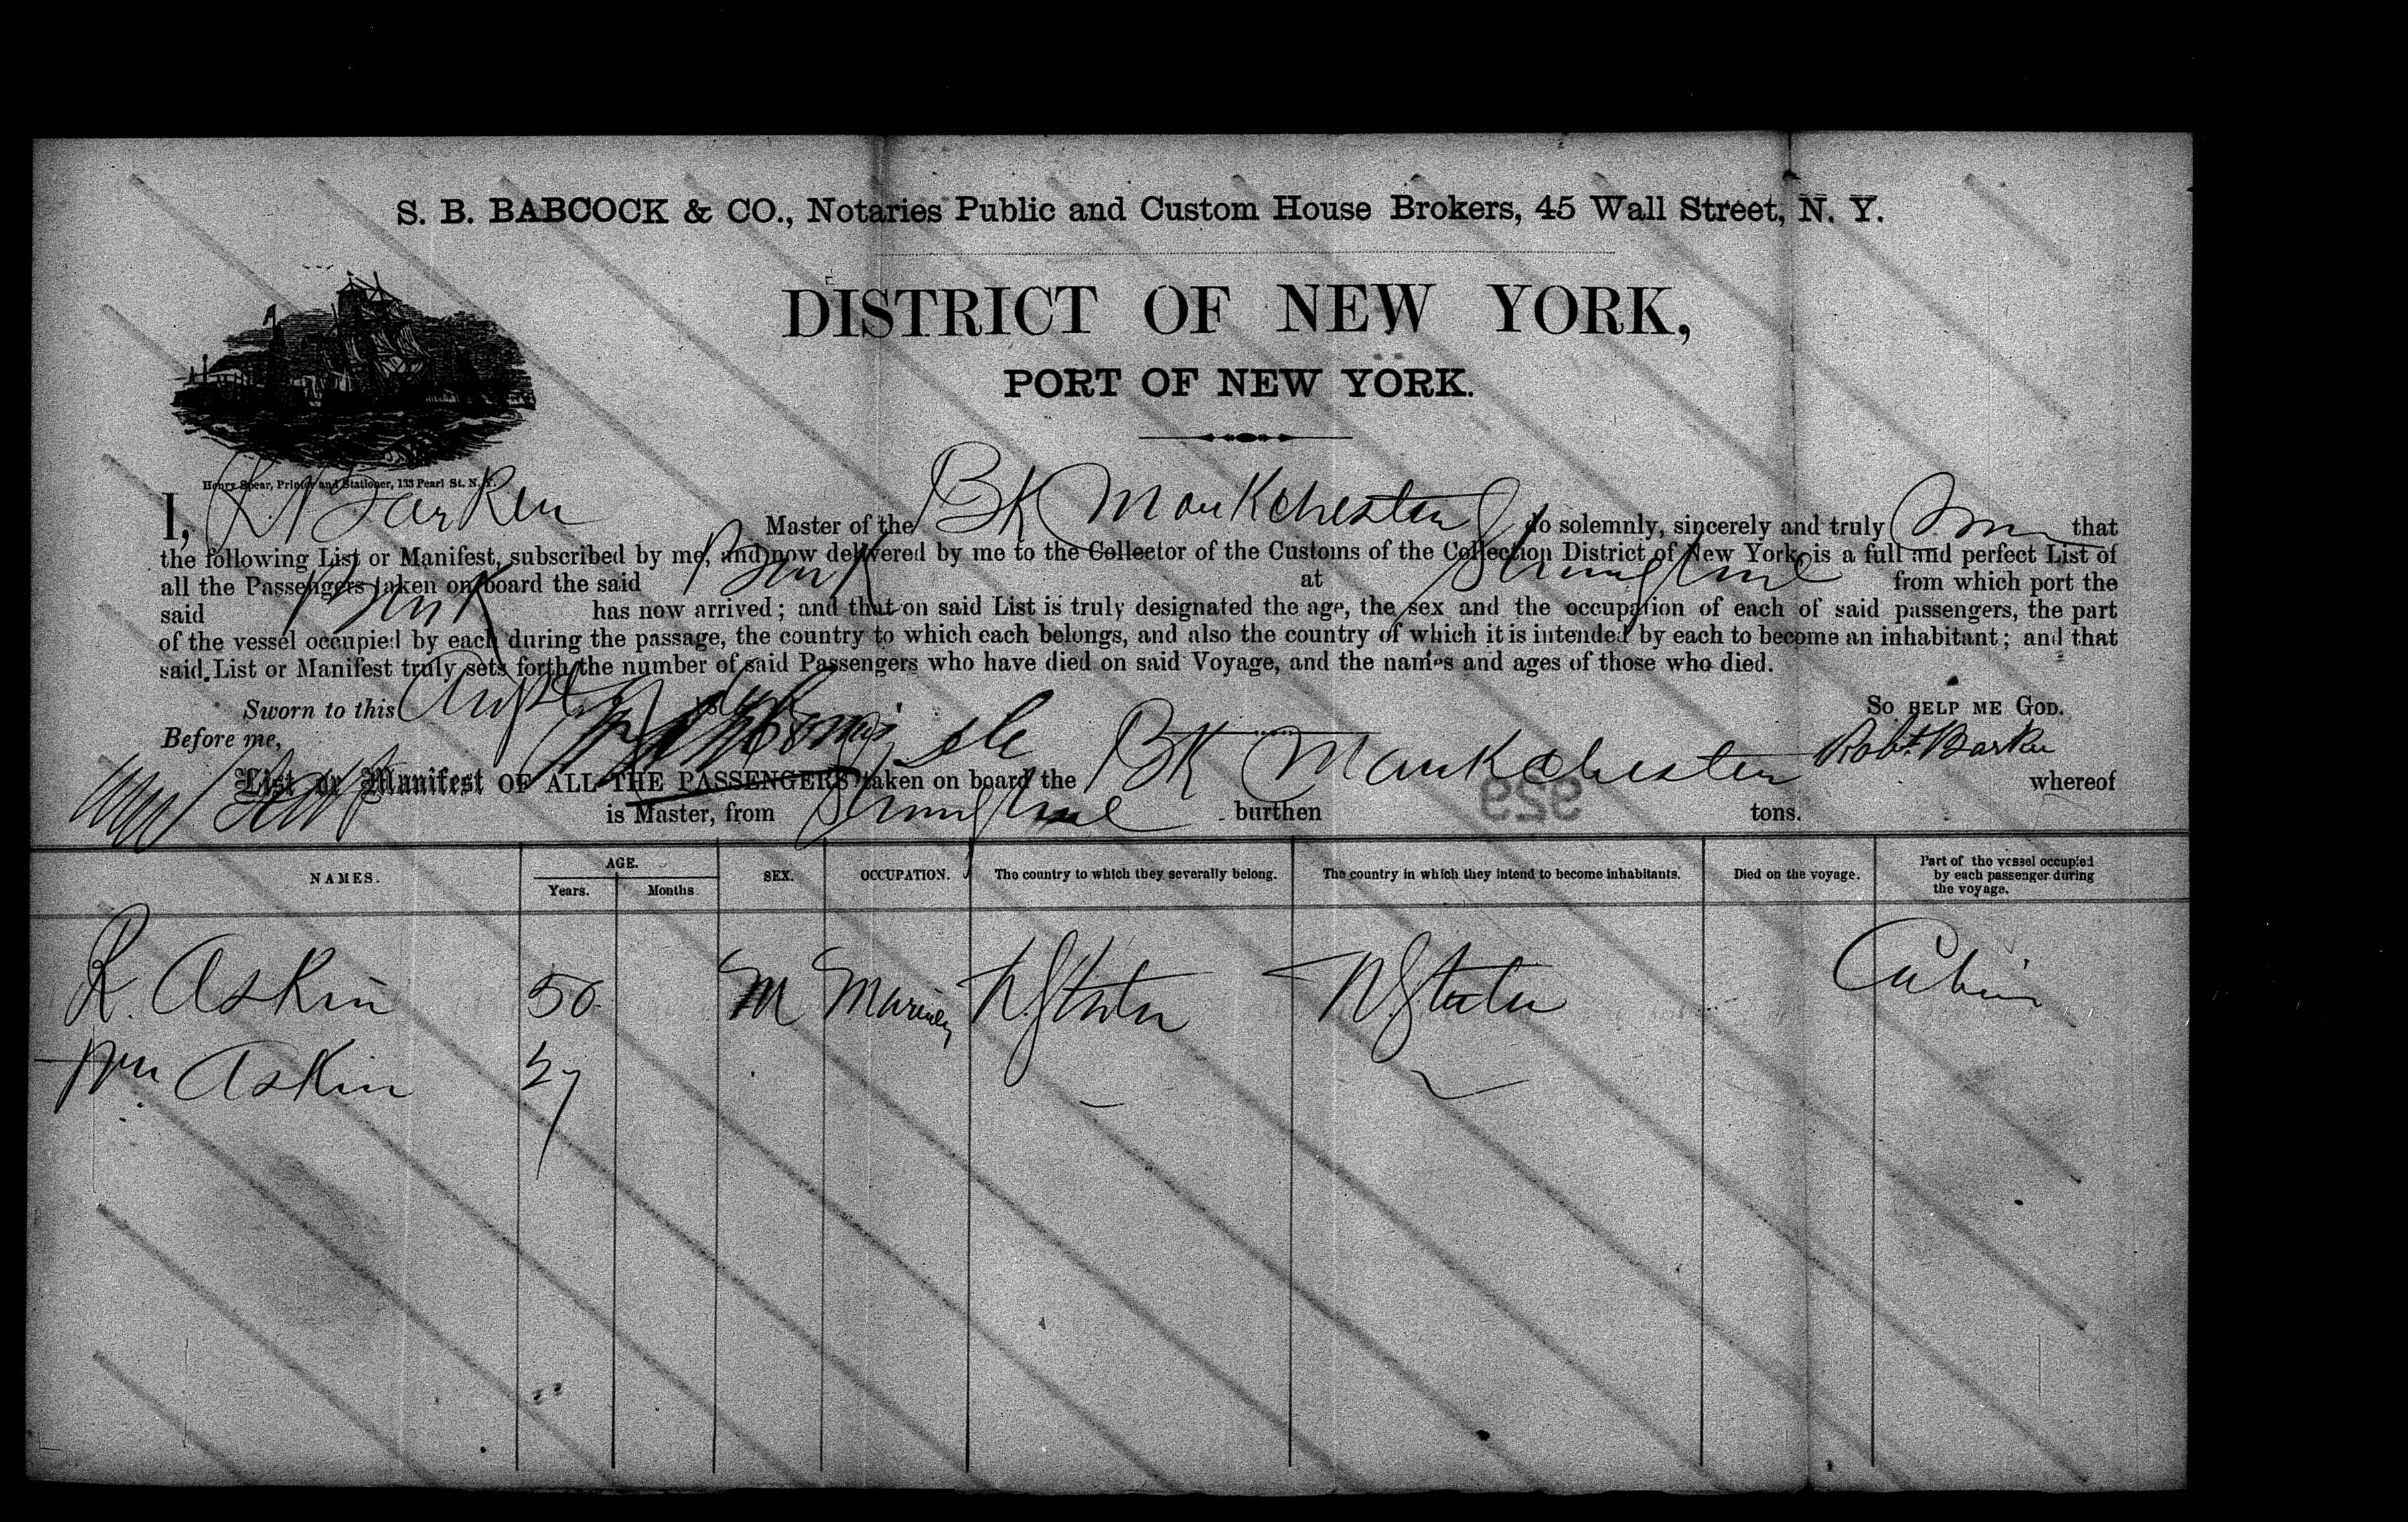 S. B. BABCOCK & CO., Notaries Public and Custom House Brokers, 45 Wall Street, N. Y.
DISTRICT OF NEW YORK,
PORT OF NEW YORK.
Henry Spear, Printer and Stationer, 133 Pearl St. N. Y.
I, R Barker Master of the BK Monkchester do solemnly, sincerely and truly that
the following List or Manifest, subscribed by me, and now delivered by me to the Collector of the Customs of the Collection District of New York, is a full and perfect List of
all the Passengers taken on board the said Bark at from which port the
said Bark has now arrived; and that on said List is truly designated the age, the sex and the occupation of each of said passengers, the part
of the vessel occupied by each during the passage, the country to which each belongs, and also the country of which it is intended by each to become an inhabitant; and that
said List or Manifest truly sets forth the number of said Passengers who have died on said Voyage, and the names and ages of those who died.
Sworn to this SO HELP ME GOD.
Before me, Robt Barker
List or Manifest OF ALL THE PASSENGERS taken on board the BK Monkchester whereof
is Master, from burthen tons.
929
NAMES. AGE. Years. Months SEX. OCCUPATION. The country to which they severally belong. The country in which they intend to become inhabitants. Died on the voyage. Part of the vessel occupied by each passenger during the voyage.
R. Askin 50 M Mariner U States U States Cabin
Wm Askin 27